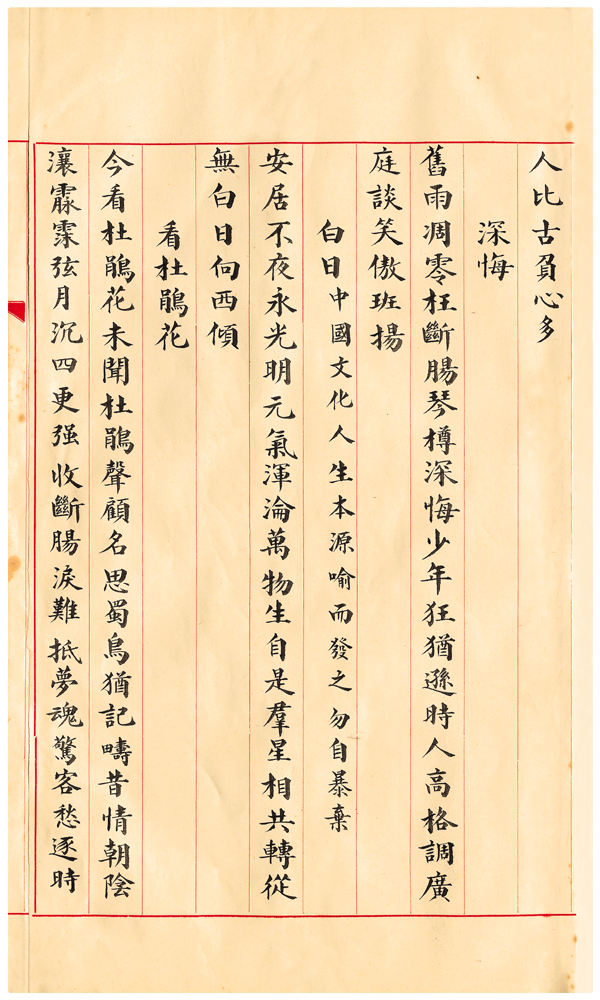 人比古負心多
深悔
舊雨凋零枉斷腸琴樽深悔少年狂猶遜時人高格調廣
庭談笑傲班揚
白日中國文化人生本源喻而發之勿自暴棄
安居不夜永光明元氣渾淪萬物生自是羣星相共轉從
無白日向西傾
看杜鵑花
今看杜鵑花未聞杜鵑聲顧名思蜀鳥猶記疇昔情朝陰
瀼霢霂弦月沉四更强收斷腸淚難抵夢魂驚客愁逐時